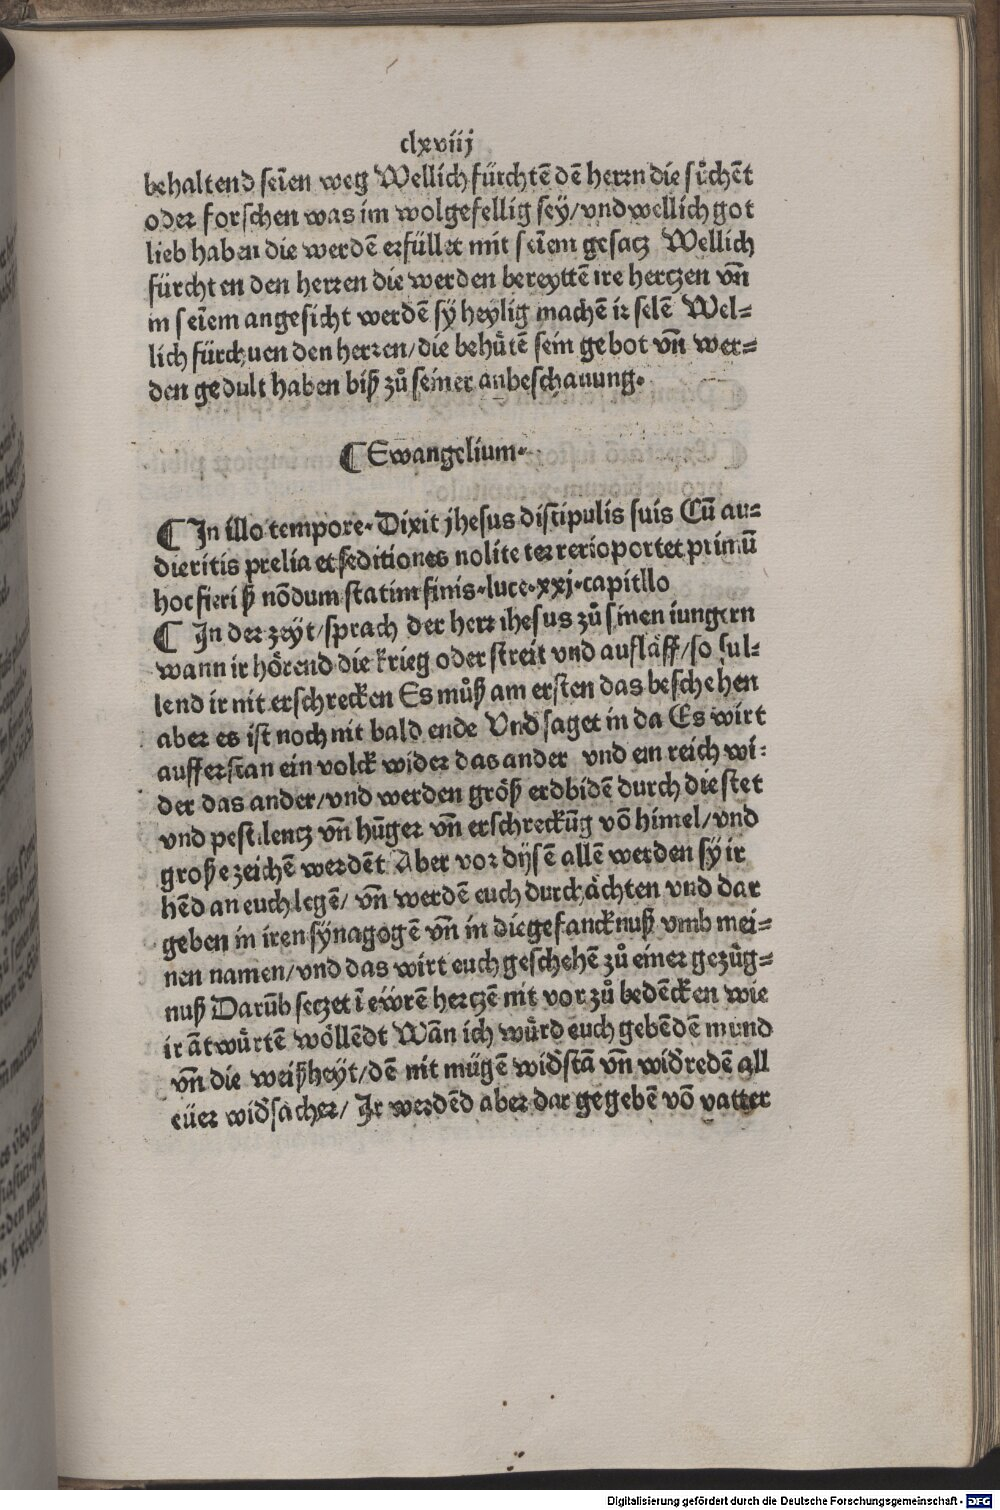 clxviij
behaltend seiēn weg Wellich fürchtē dē herrn die sůchēt
oder forschen was im wolgefellig sey/ vnd wellich got
lieb haben die werdē erfüllet mit seiēm gesatz Wellich
fürchten den herren die werden bereyttē ire hertzen vn̄
in seiēm angesicht werdē sy heylig machē ir selē Wel=
lich fürchten den herren/ die behůtē sein gebot vn̄ wer=
den gedult haben biß zů seiner anbeschauung.
¶ Ewangelium.
¶ In illo tempore. Dixit jhesus discipulis suis Cū au=
dieritis prelia et seditiones nolite terreri oportet primū
hoc fieri ß nōdum statim finis. luce. xxj. capitllo
¶ In der zeyt/ sprach der herr ihesus zů sinen iungern
wann ir hörend die krieg oder streit vnd aufläff/ so sul=
lend ir nit erschrecken Es můß am ersten das beschehen
aber es ist noch nit bald ende Vnd saget in da Es wirt
aufferstan ein volck wider das ander vnd ein reich wi=
der das ander/ vnd werden größ erdbidē durch die stet
vnd pestilentz vn̄ hūger vn̄ erschreckūg vō himel/ vnd
große zeichē werdēt Aber vor dysē allē werden sy ir
hēd an euch legē/ vn̄ werdē euch durchächten vnd dar
geben in iren synagogē vn̄ in die gefancknuß vmb mei=
nen namen/ vnd das wirt euch geschehē zů einer gezüg=
nuß Darūb setzet ī ewrē hertzē nit vor zů bedēcken wie
ir ātwürtē wöllēdt Wān ich würd euch gebēdē mund
vn̄ die weißheyt/ dē nit mügē widstā vn̄ widredē all
euer widsacher/ Ir werdēd aber dar gegebē vō vatter
Digitalisierung gefördert durch die Deutsche Forschungsgemeinschaft - DFG